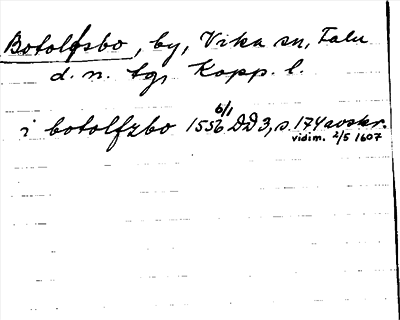 Botolfsbo, by, Vika sn, Falu
d. n. tg, Kopp. l.
i botolfzbo 1556 6/1 DD3, s. 174 avskr.
vidim. 2/5 1607